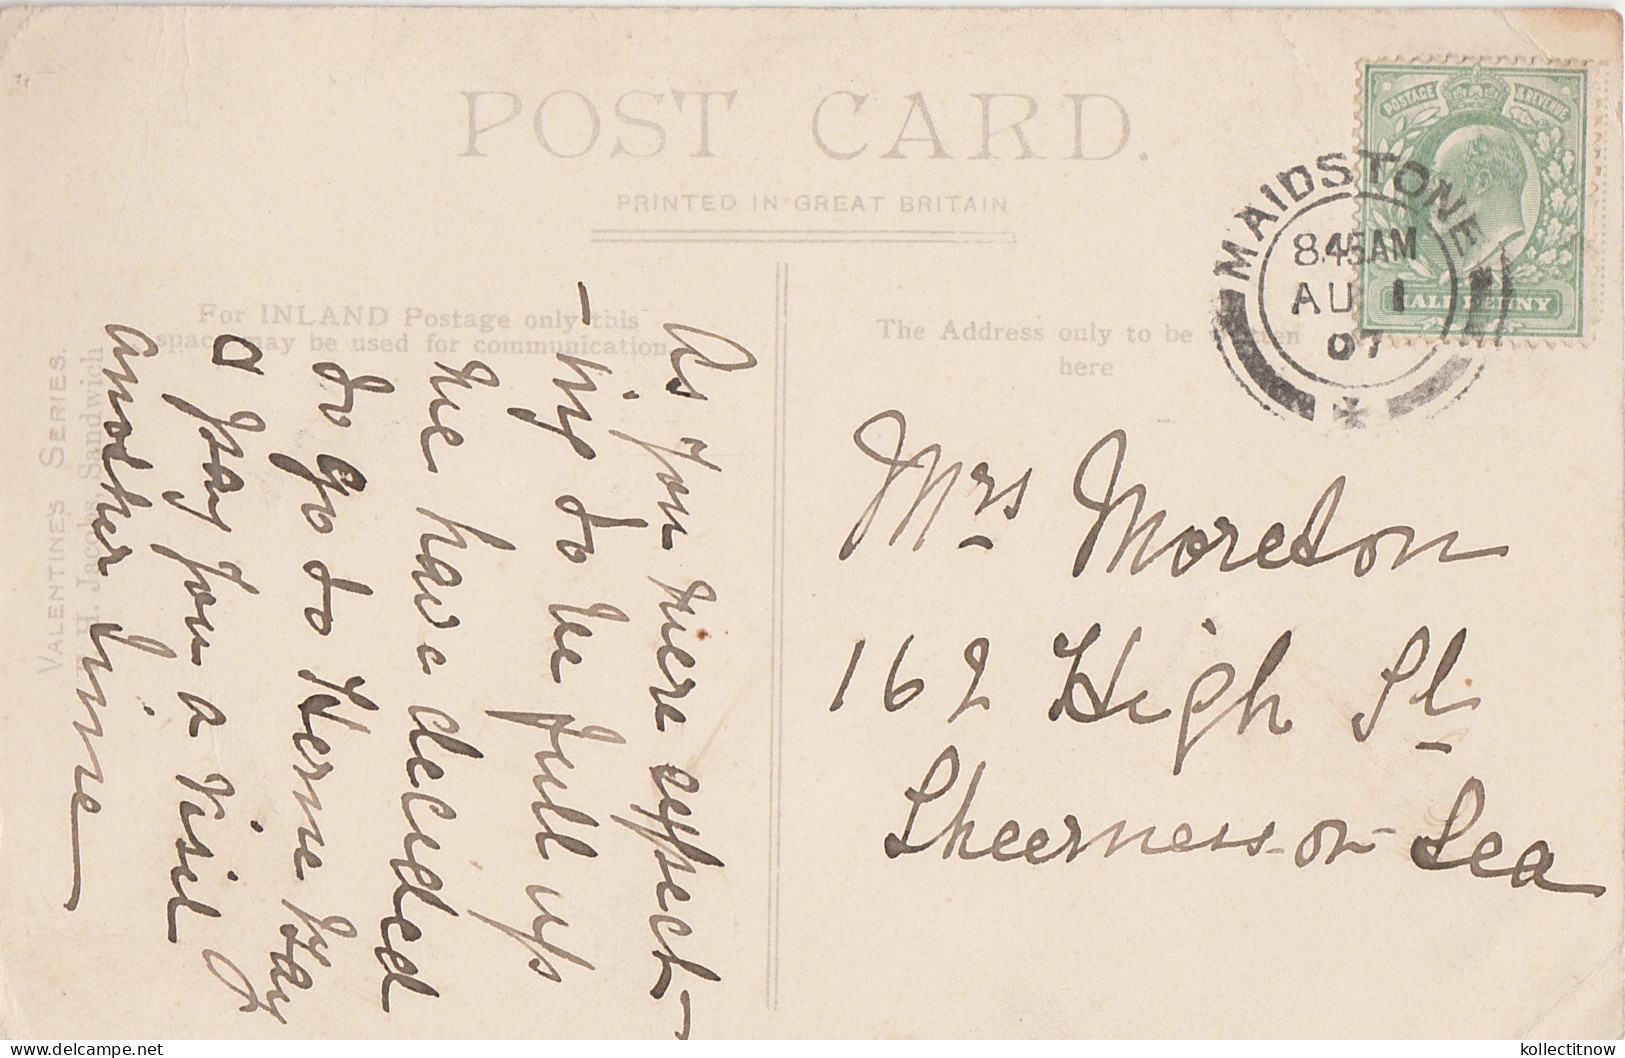 POST CARD.
PRINTED IN GREAT BRITAIN
For INLAND Postage only this
space may be used for communication
The Address only to be written
here
VALENTINE'S SERIES.
H. Jacobs, Sandwich
POSTAGE & REVENUE
HALFPENNY
MAIDSTONE
8.45AM
AU 1
07
As you were expect-
-ing to be full up
we have decided
to go to Herne Bay
& pay you a visit
another time
Mrs Moreton
162 High St
Sheerness-on-Sea
kollectitnow